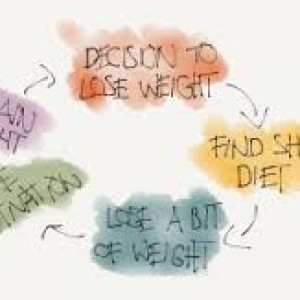 DECISION TO
LOSE WEIGHT
FIND SH
DIET
LOSE A BIT
OF WEIGHT
INATION
AIN
HT